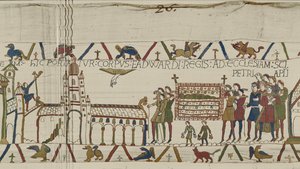 26.
HIC PORTATVR : CORPVS : EADWARDI : REGIS : AD : ECCLESIAM : SCI
PETRI APLI